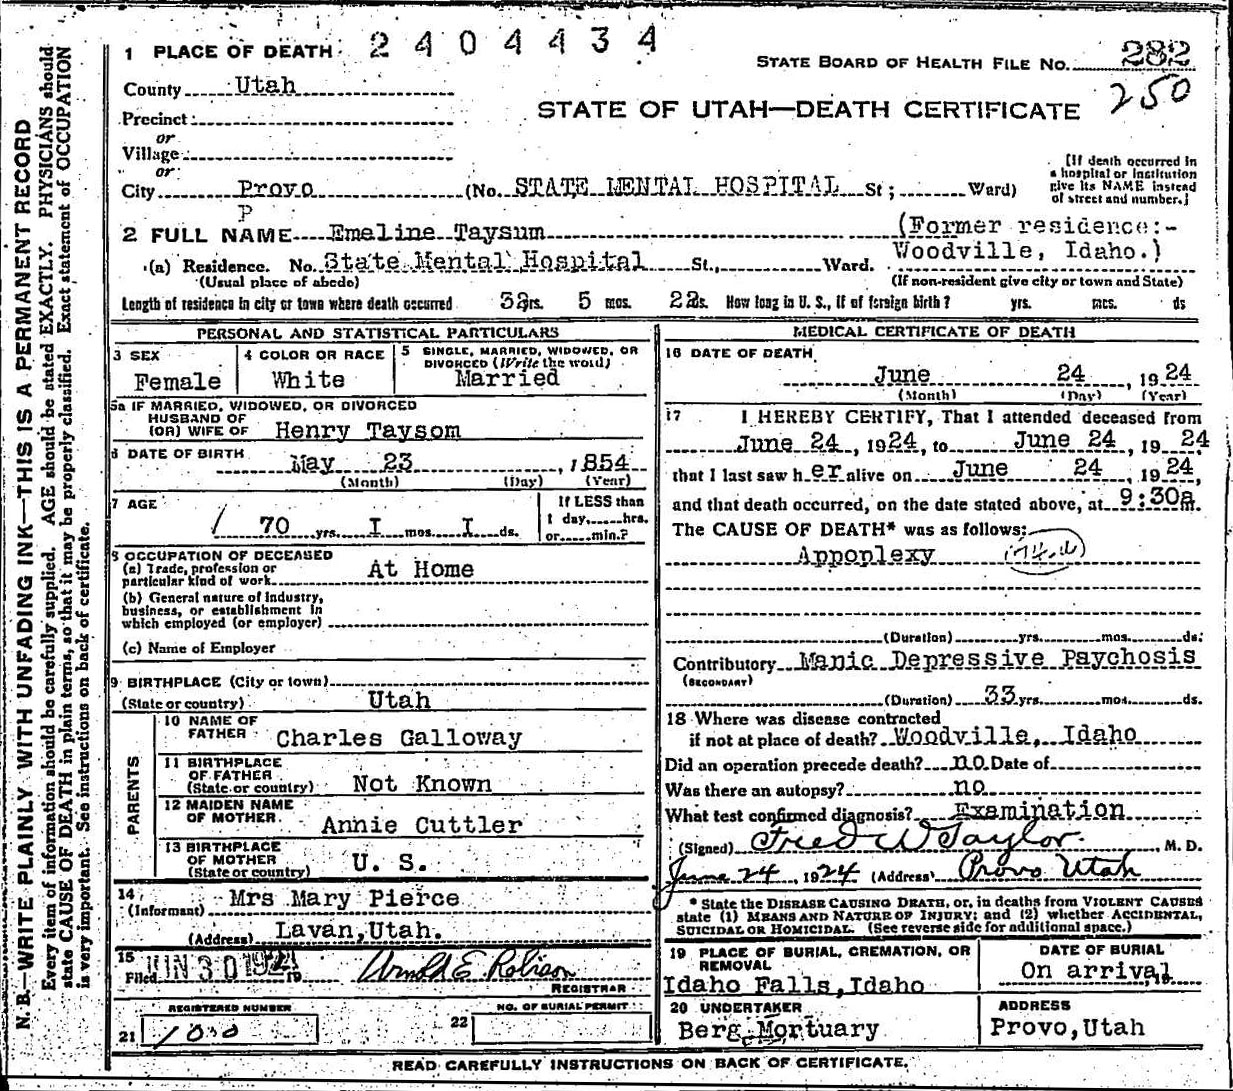 2404434
1 PLACE OF DEATH
STATE BOARD OF HEALTH FILE NO. 282
250
County Utah
STATE OF UTAH—DEATH CERTIFICATE
Precinct
or
Village
or
City Provo (No. STATE MENTAL HOSPITAL St; Ward)
[If death occurred in
a hospital or institution
give its NAME instead
of street and number.]
P
2 FULL NAME Emeline Taysum
(Former residence:-
Woodville, Idaho.)
(a) Residence. No. State Mental Hospital St., Ward.
(Usual place of abode)
(If non-resident give city or town and State)
Length of residence in city or town where death occurred 32 yrs. 5 mos. 22 ds. How long in U. S., if of foreign birth? yrs. mos. ds
PERSONAL AND STATISTICAL PARTICULARS
3 SEX
Female
4 COLOR OR RACE
White
5 SINGLE, MARRIED, WIDOWED, OR
DIVORCED (Write the word)
Married
5a IF MARRIED, WIDOWED, OR DIVORCED
HUSBAND OF
(OR) WIFE OF Henry Taysom
6 DATE OF BIRTH
May 23, 1854
(Month) (Day) (Year)
7 AGE
70 yrs. I mos. I ds.
If LESS than
1 day, hrs.
or min.?
8 OCCUPATION OF DECEASED
(a) Trade, profession or
particular kind of work At Home
(b) General nature of industry,
business, or establishment in
which employed (or employer)
(c) Name of Employer
9 BIRTHPLACE (City or town)
(State or country) Utah
PARENTS
10 NAME OF
FATHER Charles Galloway
11 BIRTHPLACE
OF FATHER
(State or country) Not Known
12 MAIDEN NAME
OF MOTHER Annie Cuttler
13 BIRTHPLACE
OF MOTHER
(State or country) U. S.
14
(Informant) Mrs Mary Pierce
(Address) Lavan,Utah.
15
Filed JUN 30 1924 Arnold E. Robison
REGISTRAR
REGISTERED NUMBER
21 100
NO. OF BURIAL PERMIT
22
MEDICAL CERTIFICATE OF DEATH
16 DATE OF DEATH
June 24, 1924
(Month) (Day) (Year)
17 I HEREBY CERTIFY, That I attended deceased from
June 24, 1924, to June 24, 1924
that I last saw her alive on June 24, 1924,
and that death occurred, on the date stated above, at 9:30a m.
The CAUSE OF DEATH* was as follows:
Appoplexy
(Duration) yrs. mos. ds.
Contributory Manic Depressive Psychosis
(SECONDARY)
(Duration) 33 yrs. mos. ds.
18 Where was disease contracted
if not at place of death? Woodville, Idaho
Did an operation precede death? no Date of
Was there an autopsy? no
What test confirmed diagnosis? Examination
(Signed) Fred W Taylor, M. D.
June 24, 1924 (Address) Provo Utah
* State the DISEASE CAUSING DEATH, or, in deaths from VIOLENT CAUSES
state (1) MEANS AND NATURE OF INJURY; and (2) whether ACCIDENTAL,
SUICIDAL OR HOMICIDAL. (See reverse side for additional space.)
19 PLACE OF BURIAL, CREMATION, OR
REMOVAL
Idaho Falls,Idaho
DATE OF BURIAL
On arrival, 19
20 UNDERTAKER
Berg Mortuary
ADDRESS
Provo,Utah
READ CAREFULLY INSTRUCTIONS ON BACK OF CERTIFICATE.
N. B.—WRITE PLAINLY WITH UNFADING INK—THIS IS A PERMANENT RECORD
Every item of information should be carefully supplied. AGE should be stated EXACTLY. PHYSICIANS should
state CAUSE OF DEATH in plain terms, so that it may be properly classified. Exact statement of OCCUPATION
is very important. See instructions on back of certificate.